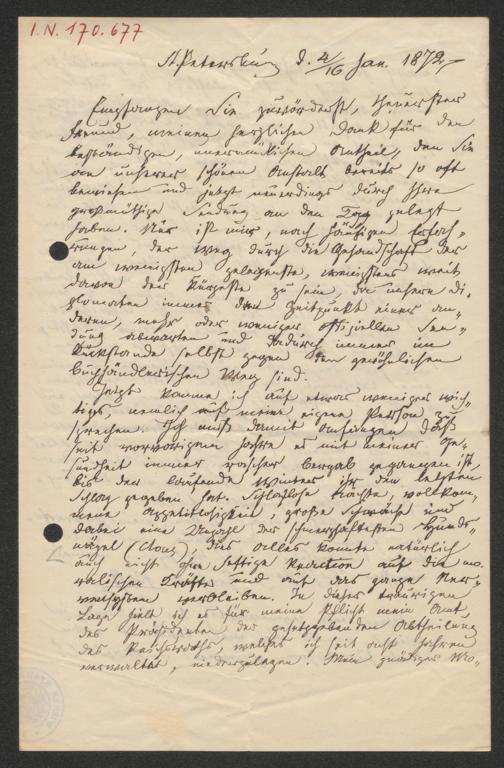 I.N. 170.677
St. Petersburg d. 4/16 Jan. 1872
Empfangen Sie zuvörderst, theuerster
Freund, meinen herzlichen Dank für den
beständigen, unermüdlichen Antheil, den Sie
an unserer schönen Anstalt bereits so oft
bewiesen und jetzt neuerdings durch Ihre
großmüthige Sendung an den Tag gelegt
haben. Nur ist mir, nach häufigen Erfah-
rungen, der Weg durch die Gesandtschaft der
am wenigsten gelegenste, wenigstens weit
davon der kürzeste zu sein, da unsere di-
plomaten immer den Zeitpunkt einer an-
deren, mehr oder weniger offiziellen Sen-
dung abwarten und dadurch immer im
Rückstande selbst gegen den gewöhnlichen
buchhändlerischen Weg sind.
Jetzt komme ich auf etwas weniger wich-
tiges, nemlich auf meine eigene Person zu
sprechen. Ich muß damit anfangen daß
seit vorvorigem Jahre es mit meiner Ge-
sundheit immer rascher bergab gegangen ist,
bis der laufende Winter ihr den letzten
Schlag gegeben hat. Schlaflose Nächte, vollkom-
mene Appetitlosigkeit, große Schwäche und
dabei eine Unzahl der schmerzhaftesten
(Clous), dies alles konnte natürlich
auch nicht ohne heftige Reaction auf die mo-
ralischen Kräfte und auf das ganze Ner-
vensystem verbleiben. In dieser traurigen
Lage hielt ich es für meine Pflicht mein Amt,
des Präsidenten der gesetzgebenden Abtheilung
des Reichsraths, welches ich seit acht Jahren
verwaltet, niederzulegen. Mein gnädiger Mo-